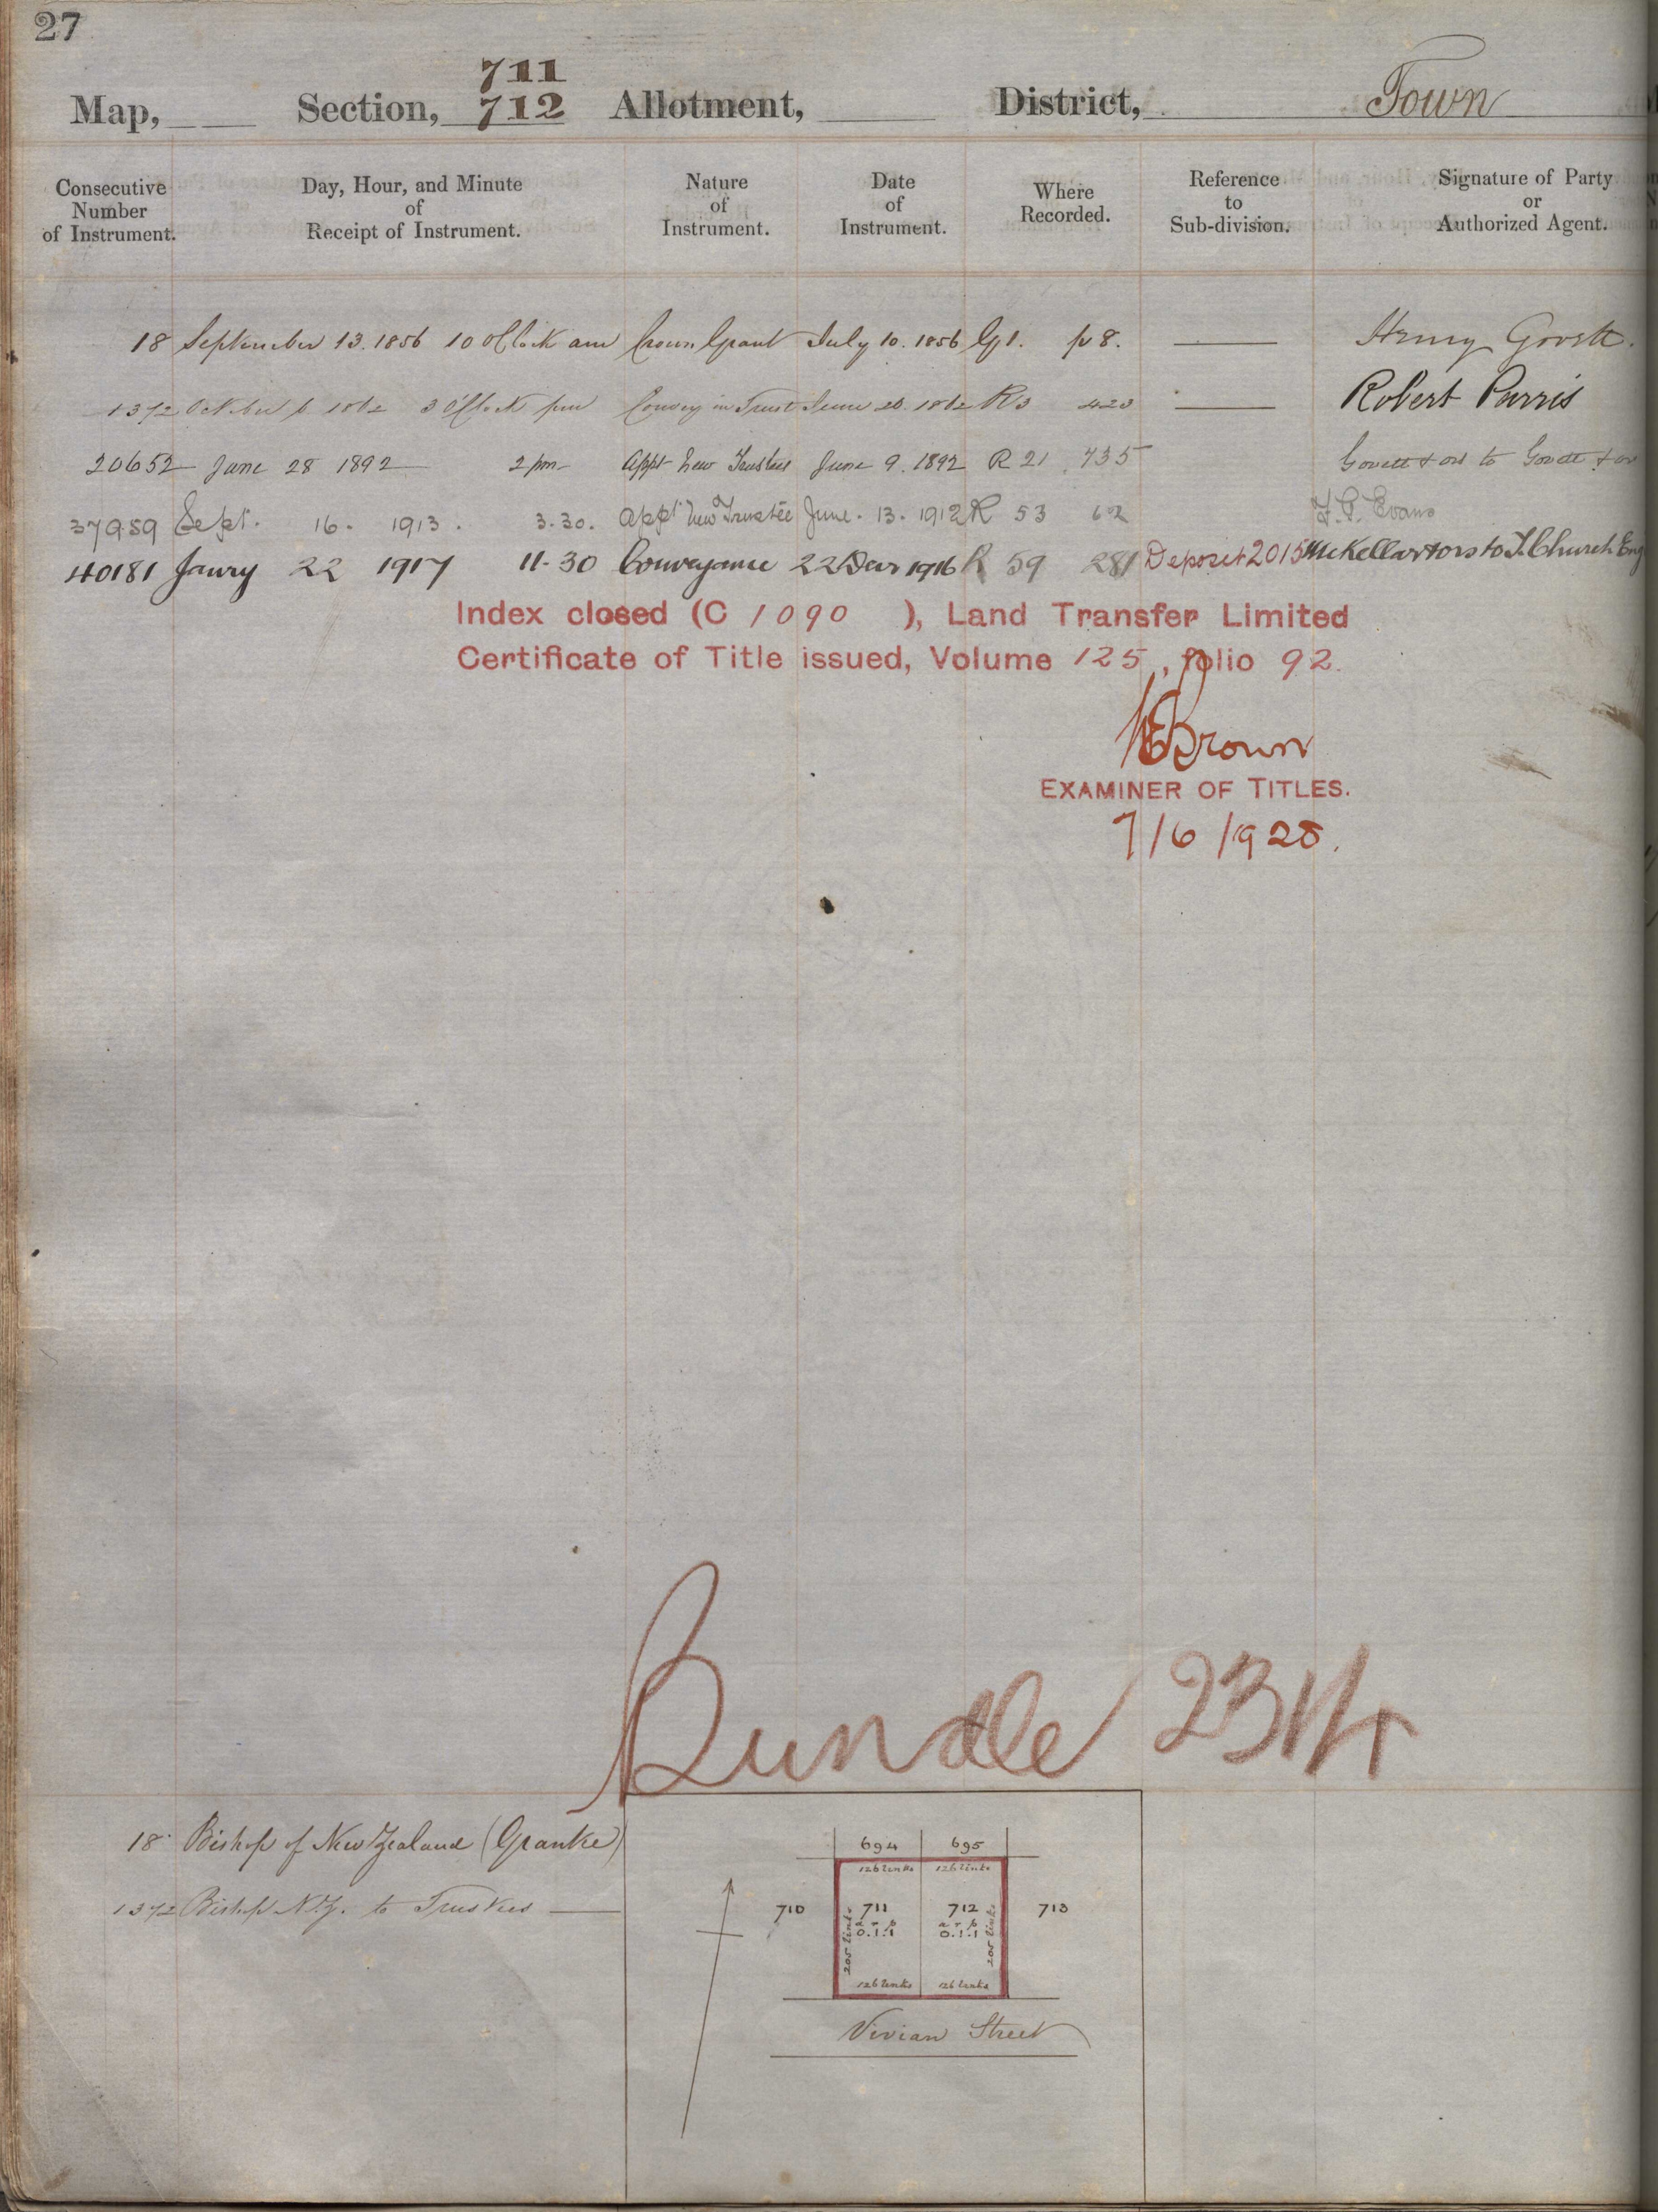 27
711
Map, Section, 712 Allotment, District, Town
Consecutive Number of Instrument. Day, Hour, and Minute of Receipt of Instrument. Nature of Instrument. Date of Instrument. Where Recorded. Reference to Sub-division. Signature of Party or Authorized Agent.
18 September 13. 1856 10 o'Clock am Crown Grant July 10. 1856 G 1. p 8. Henry Govett.
1372 October 6 1862 3 o'Clock pm Convey in Trust June 20. 1862 R3 423 Robert Parris
20652 June 28 1892 2 pm Appt New Trustees June 9. 1892 R 21. 735 Govett & ors to Govett & ors
37959 Sept. 16. 1913. 3.30. Appt New Trustee June. 13. 1912 R 53 62 Evans
40181 Janry 22 1917 11.30 Conveyance 22 Decr 1916 R 59 281 Deposit 2015 McKellar & ors to Church Eng
Index closed (C 1090 ), Land Transfer Limited
Certificate of Title issued, Volume 125, folio 92.
Brown
EXAMINER OF TITLES.
7/6/1928.
Bundle 2314
18 Bishop of New Zealand (Grantee)
1372 Bishop N.Z. to Trustees
694 695
126 links 126 links
710 711 712 713
a r p a r p
0.1.1 0.1.1
205 links 205 links
126 links 126 links
Vivian Street